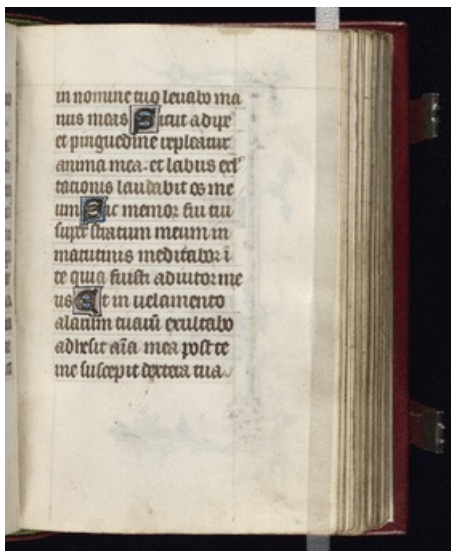 in nomine tuo levabo ma
nus meas Sicut adipe
et pinguedine repleatur
anima mea et labiis exl
tacionis laudabit os me
um Sic memor fui tui
super stratum meum in
matutinis meditabor i
te quia fuisti adiutor me
us Et in uelamento
alarum tuarum exultabo
adhesit aīa mea post te
me suscepit dextera tua